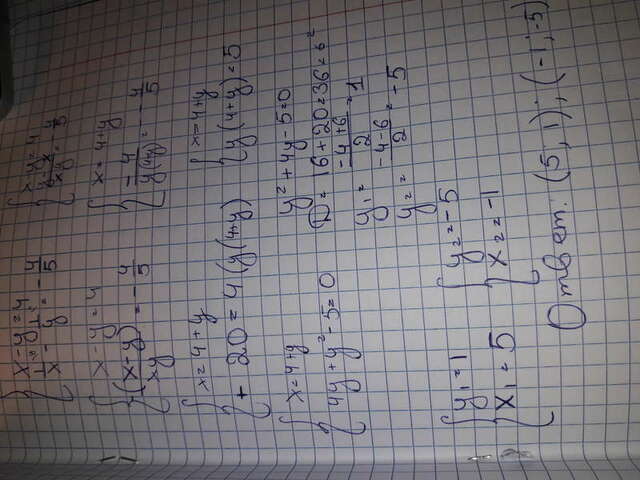 { x - y = 4
1/x - 1/y = -4/5
{ x - y = 4
y - x / xy = -4/5
{ x - y = 4
-(x - y) / xy = -4/5
{ x = 4 + y
-4 / y(4+y) = -4/5
{ x = 4 + y
+ 20 = 4(y(4+y)
{ x = 4 + y
y(4+y) = 5
{ x = 4 + y
4y + y² - 5 = 0
y² + 4y - 5 = 0
D = 16 + 20 = 36 = 6²
y₁ = -4+6 / 2 = 1
y₂ = -4-6 / 2 = -5
{ y₁ = 1
x₁ = 5
{ y₂ = -5
x₂ = -1
Ответ: (5; 1); (-1; -5)